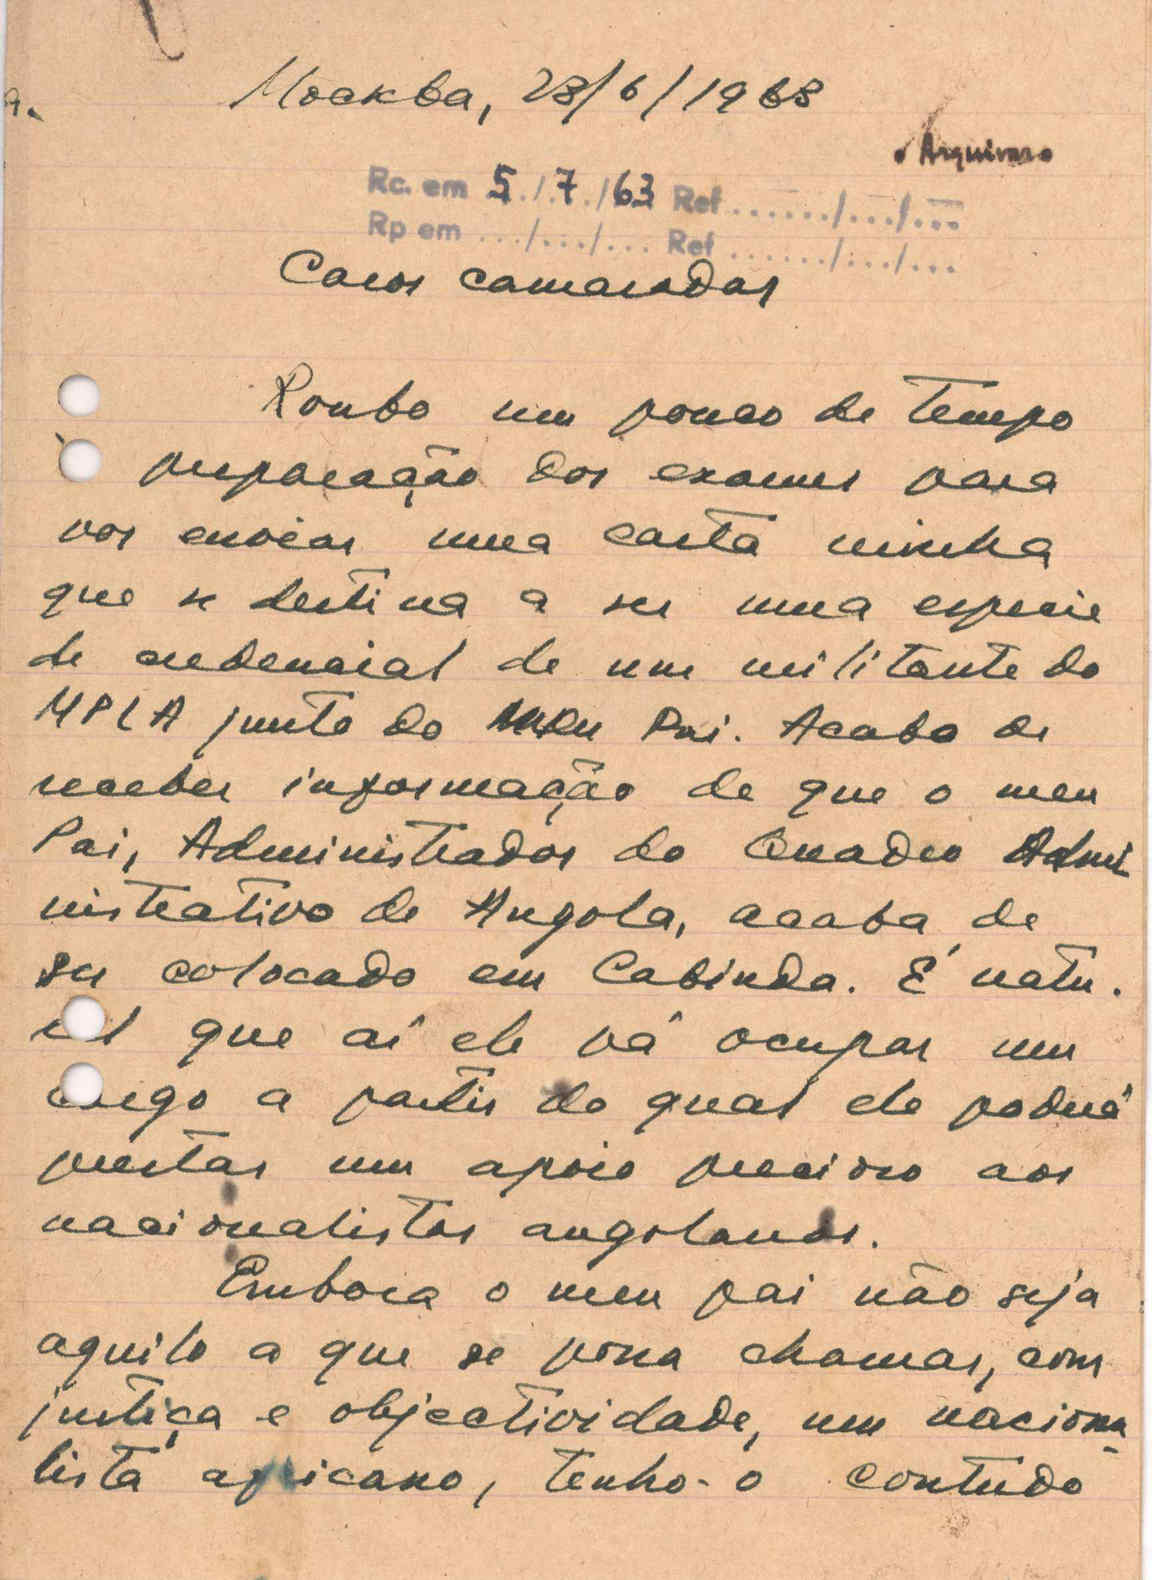 Москва, 28/6/1963
Arquivar
Rc. em 5./7./63 Ref ....../.../...
Rp em .../.../... Ref ....../.../...
Caros camaradas
Roubo um pouco de tempo
preparação dos exames para
vos enviar uma carta minha
que se destina a ser uma especie
de credencial de um militante do
MPLA junto do meu Pai. Acabo de
receber informação de que o meu
Pai, Administrador do Quadro Admi
nistrativo de Angola, acaba de
ser colocado em Cabinda. É natu.
ral que aí ele vá ocupar um
cargo a partir do qual ele poderá
prestar um apoio precioso aos
nacionalistas angolanos.
Embora o meu pai não seja
aquilo a que se possa chamar, com
justiça e objectividade, um naciona
lista africano, tenho-o contudo